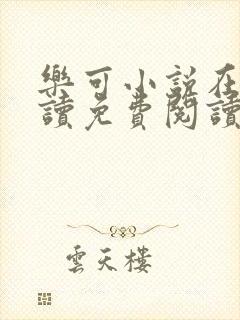 樂可小說在
讀免費閱讀
雲天樓